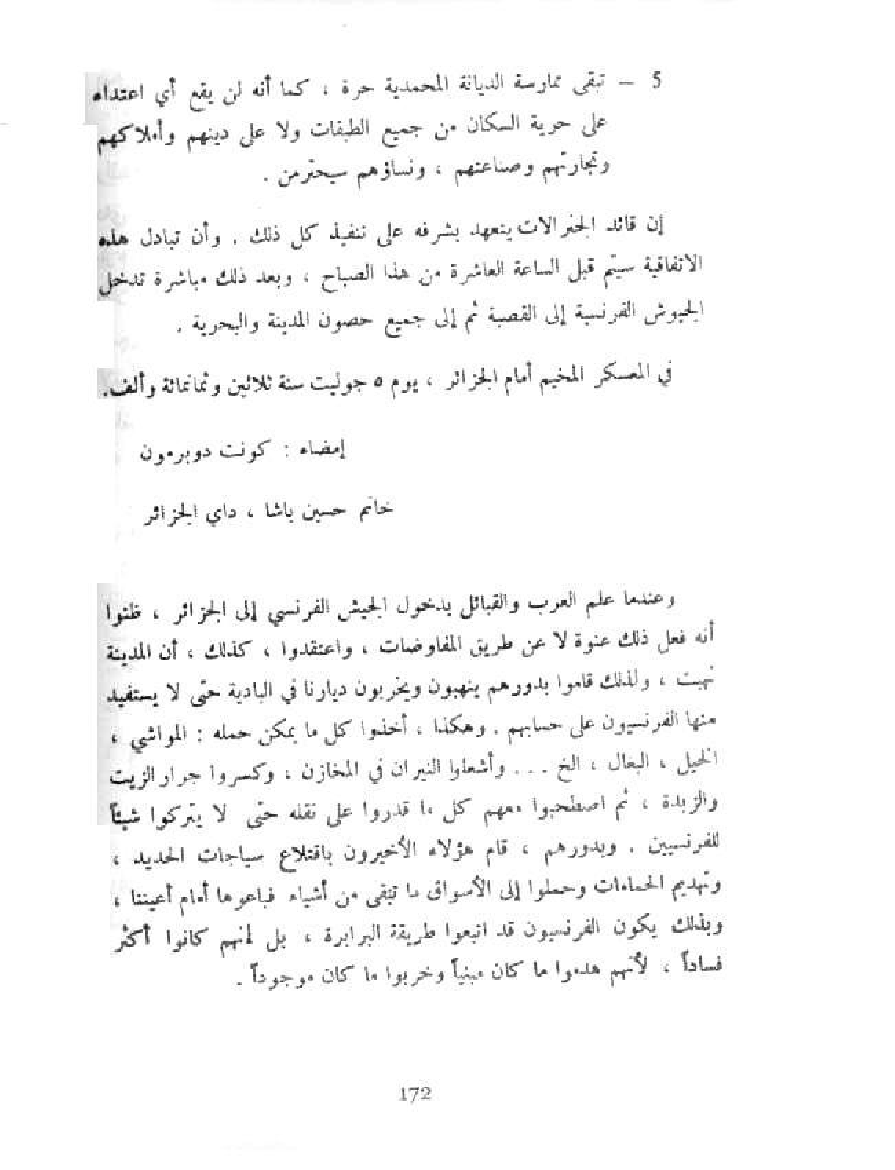 5 – تبقى ممارسة الديانة المحمدية حرة ، كما أنه لن يقع أي اعتداء
على حرية السكان من جميع الطبقات ولا على دينهم وأملاكهم
وتجارتهم وصناعتهم ، ونساؤهم سيحترمن .
إن قائد الجنرالات يتعهد بشرفه على تنفيذ كل ذلك . وأن تبادل هذه
الاتفاقية سيتم قبل الساعة العاشرة من هذا الصباح ، وبعد ذلك مباشرة تدخل
الجيوش الفرنسية إلى القصبة ثم إلى جميع حصون المدينة والبحرية .
في المعسكر المخيم أمام الجزائر ، يوم ٥ جوليت سنة ثلاثين وثمانمائة وألف.
إمضاء : كونت دوبرمون
خاتم حسين باشا ، داي الجزائر
وعندما علم العرب والقبائل بدخول الجيش الفرنسي إلى الجزائر ، ظنوا
أنه فعل ذلك عنوة لا عن طريق المفاوضات ، واعتقدوا ، كذلك ، أن المدينة
نهبت ، ولذلك قاموا بدورهم ينهبون ويخربون ديارنا في البادية حتى لا يستفيد
منها الفرنسيون على حسابهم . وهكذا ، أخذوا كل ما يمكن حمله : المواشي ،
الخيل ، البغال ، الخ ... وأشعلوا النيران في المخازن ، وكسروا جرار الزيت
والزبدة ، ثم اصطحبوا معهم كل ما قدروا على نقله حتى لا يتركوا شيئاً
للفرنسيين . وبدورهم ، قام هؤلاء الأخيرون باقتلاع سياجات الحديد ،
وتهديم الحمامات وحملوا إلى الأسواق ما تبقى من أشياء فباعوها أمام أعيننا ،
وبذلك يكون الفرنسيون قد اتبعوا طريقة البرابرة ، بل إنهم كانوا أكثر
فساداً ، لأنهم هدموا ما كان مبنياً وخربوا ما كان موجوداً .
172